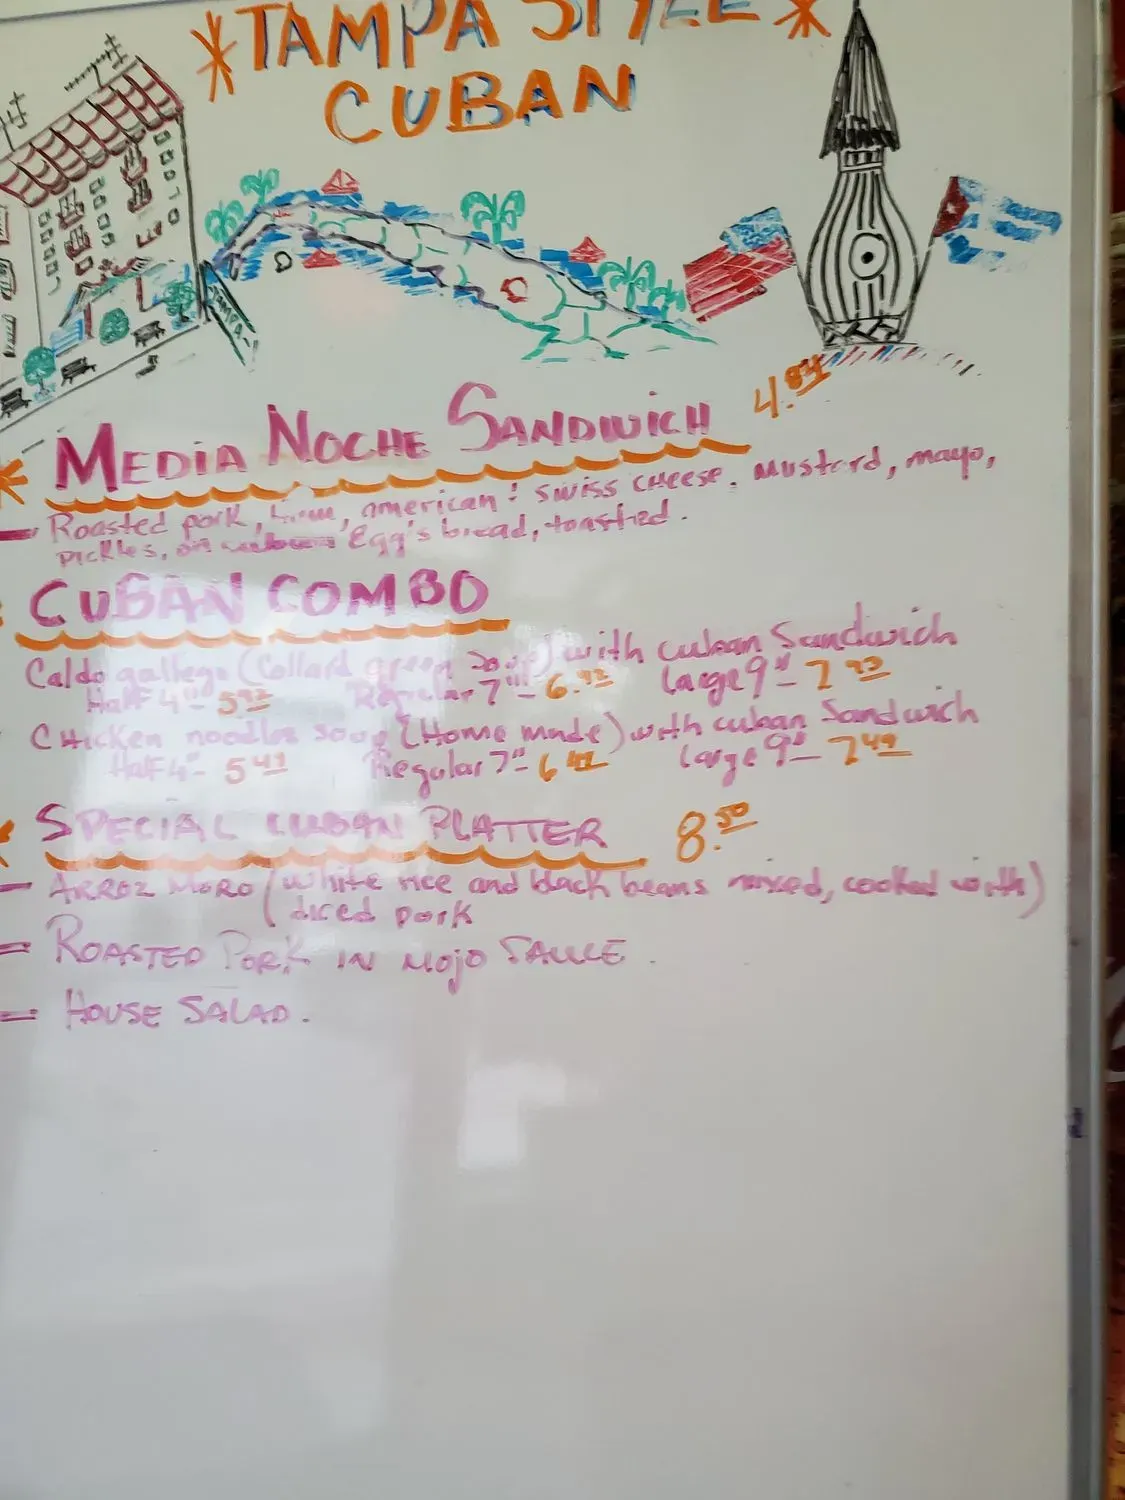 *TAMPA STYLE*
CUBAN
TAMPA
MEDIA NOCHE SANDWICH 4.
Roasted pork, ham, american : swiss cheese. Mustard, mayo,
Pickles, on Egg's bread, toasted.
CUBAN COMBO
Caldo gallego (Collard green Soup) with cuban Sandwich
Half 4" - 5 Regular 7" - 6. Large 9" - 7
Chicken noodles soup (Home made) with cuban Sandwich
Half 4" - 5 49 Regular 7" - 6 Large 9" - 7 49
SPECIAL CUBAN PLATTER 8.50
- ARROZ MORO (white rice and black beans mixed, cooked with)
diced pork
= ROASTED PORK IN MOJO SAUCE.
= HOUSE SALAD.